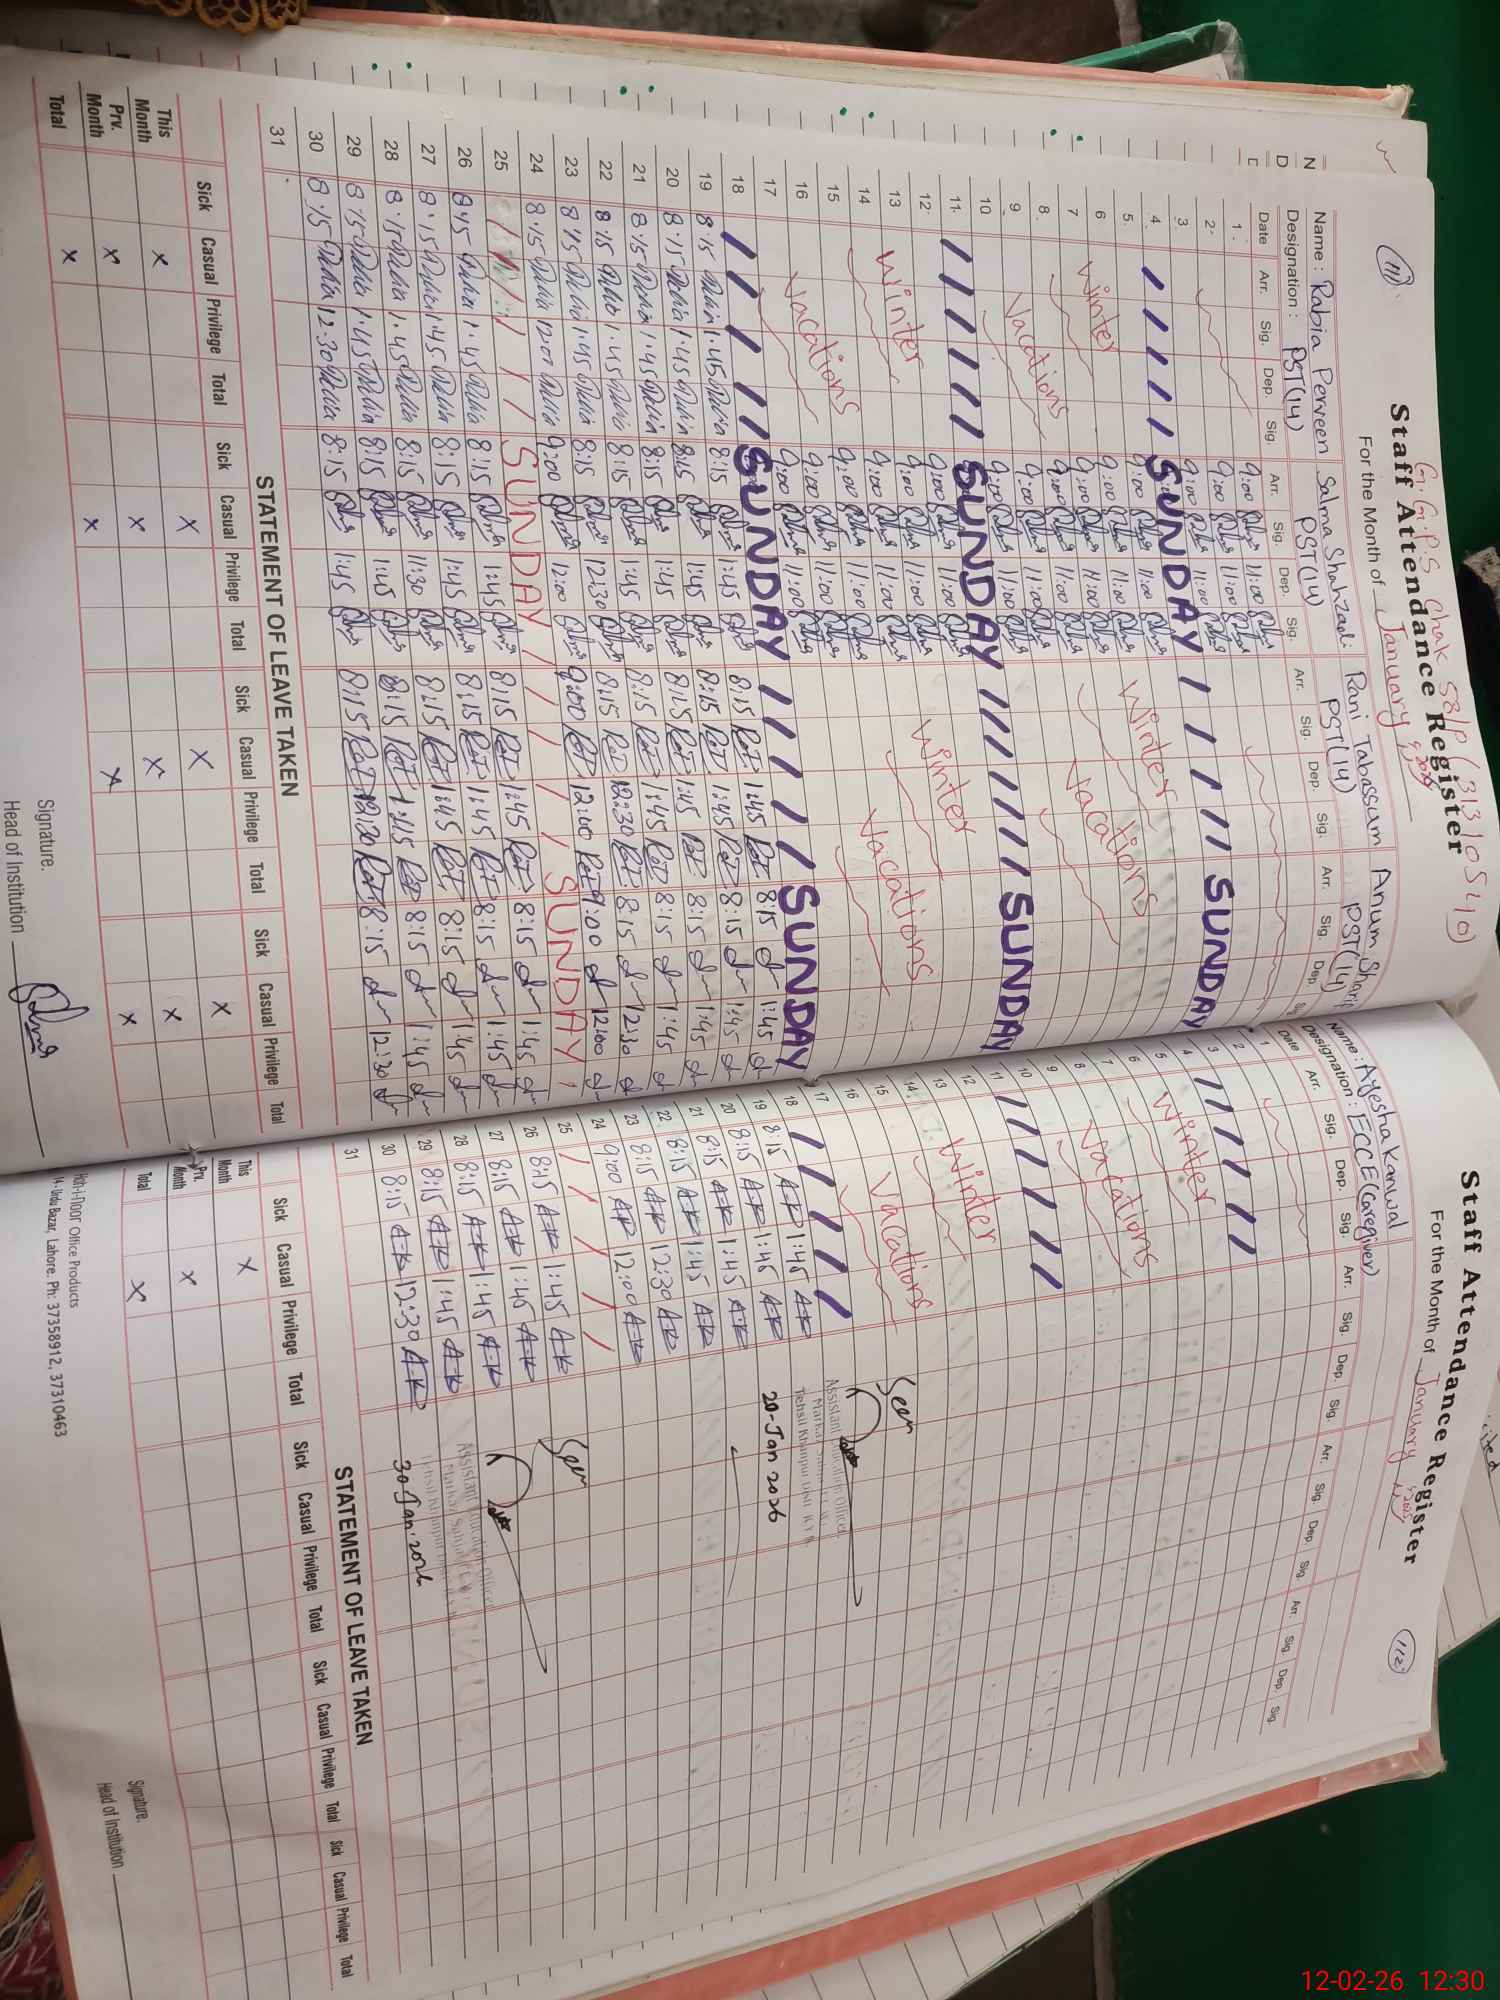 111
G.G.P.S Chak 58/P (31310540)
Staff Attendance Register
For the Month of January, 2026
Name : Rabia Perveen Salma Shahzadi Rani Tabassam Anum Sharif
Designation : PST(14) PST(14) PST(14) PST(14)
Date Arr. Sig. Dep. Sig. Arr. Sig. Dep. Sig. Arr. Sig. Dep. Sig. Arr. Sig. Dep.
1 9:00 11:00
2 9:00 11:00
3 9:00 11:00
4 SUNDAY SUNDAY
5 9:00 11:00
6 Winter 9:00 11:00 Winter
7 9:00 11:00
8 Vacations 9:00 11:00 Vacations
9 9:00 11:00
10 9:00 11:00
11 SUNDAY SUNDAY
12 9:00 11:00
13 Winter 9:00 11:00 Winter
14 9:00 11:00
15 Vacations 9:00 11:00 Vacations
16 9:00 11:00
17 9:00 11:00
18 SUNDAY SUNDAY
19 8:15 1:45 8:15 1:45 8:15 1:45 8:15 1:45
20 8:15 1:45 8:15 1:45 8:15 1:45 8:15 1:45
21 8:15 1:45 8:15 1:45 8:15 1:45 8:15 1:45
22 8:15 1:45 8:15 1:45 8:15 1:45 8:15 1:45
23 8:15 1:45 8:15 12:30 8:15 12:30 8:15 12:30
24 8:15 12:00 9:00 12:00 9:00 12:00 9:00 12:00
25 SUNDAY SUNDAY
26 8:15 1:45 8:15 1:45 8:15 1:45 8:15 1:45
27 8:15 1:45 8:15 1:45 8:15 1:45 8:15 1:45
28 8:15 1:45 8:15 11:30 8:15 1:45 8:15 1:45
29 8:15 1:45 8:15 1:45 8:15 1:45 8:15 1:45
30 8:15 12:30 8:15 1:45 8:15 12:30 8:15 12:30
31
STATEMENT OF LEAVE TAKEN
Sick Casual Privilege Total Sick Casual Privilege Total Sick Casual Privilege Total Sick Casual Privilege Total
This Month x x x x
Prv. Month x x x x
Total x x x x
Signature.
Head of Institution
112
Staff Attendance Register
For the Month of January
Name : Ayesha Kanwal
Designation : ECCE(Caregiver)
Date Arr. Sig. Dep. Sig. Arr. Sig. Dep. Sig. Arr. Sig. Dep. Sig. Arr. Sig. Dep. Sig.
1
2
3
4
5
6 Winter
7
8 Vacations
9
10
11
12
13 Winter
14
15 Vacations
16
17 Seen
18
19 8:15 AK 1:45 AK
Assistant Education Officer
20 8:15 AK 1:45 AK 20-Jan 2026
21 8:15 AK 1:45 AK
22 8:15 AK 1:45 AK
23 8:15 AK 12:30 AK
24 9:00 AK 12:00 AK
25
26 8:15 AK 1:45 AK Seen
27 8:15 AK 1:45 AK
28 8:15 AK 1:45 AK
Assistant Education Officer
29 8:15 AK 1:45 AK
30 8:15 AK 12:30 AK 30-Jan-2026
31
STATEMENT OF LEAVE TAKEN
Sick Casual Privilege Total Sick Casual Privilege Total Sick Casual Privilege Total Sick Casual Privilege Total
This Month x
Prv. Month x
Total x
Signature.
Head of Institution
Office Products
14- Urdu Bazar, Lahore. Ph: 37358912, 37310463
12-02-26 12:30